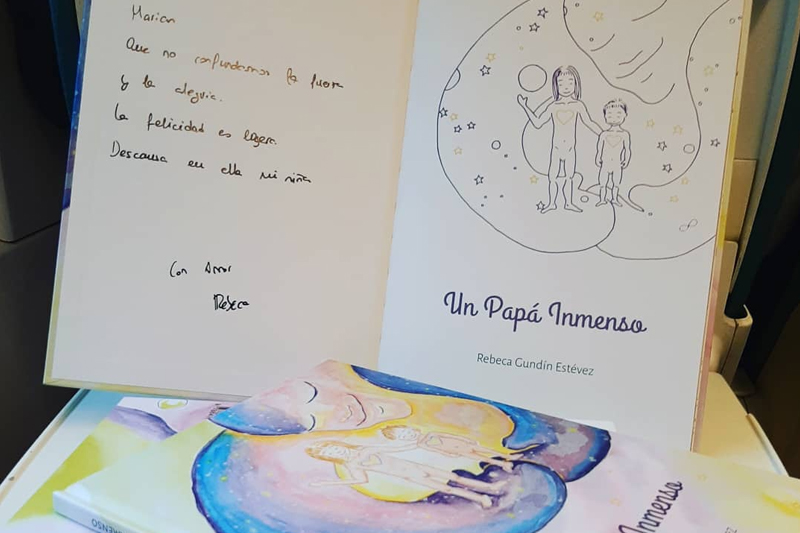 Marian
Que no confundamos la fuerza
y la alegría.
La felicidad es ligera.
Descansa en ella mi niña
Con Amor
Rebeca
Un Papá Inmenso
Rebeca Gundín Estévez
Inmenso